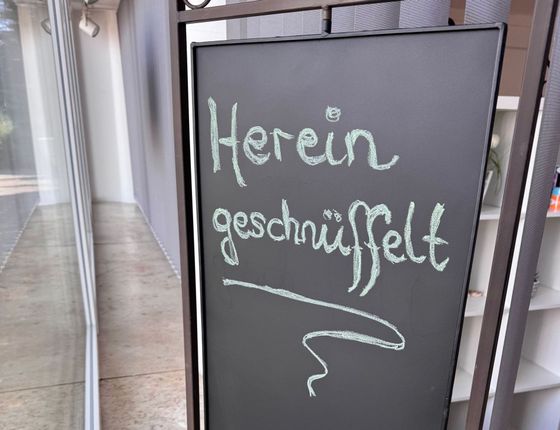 Herein
geschnüffelt